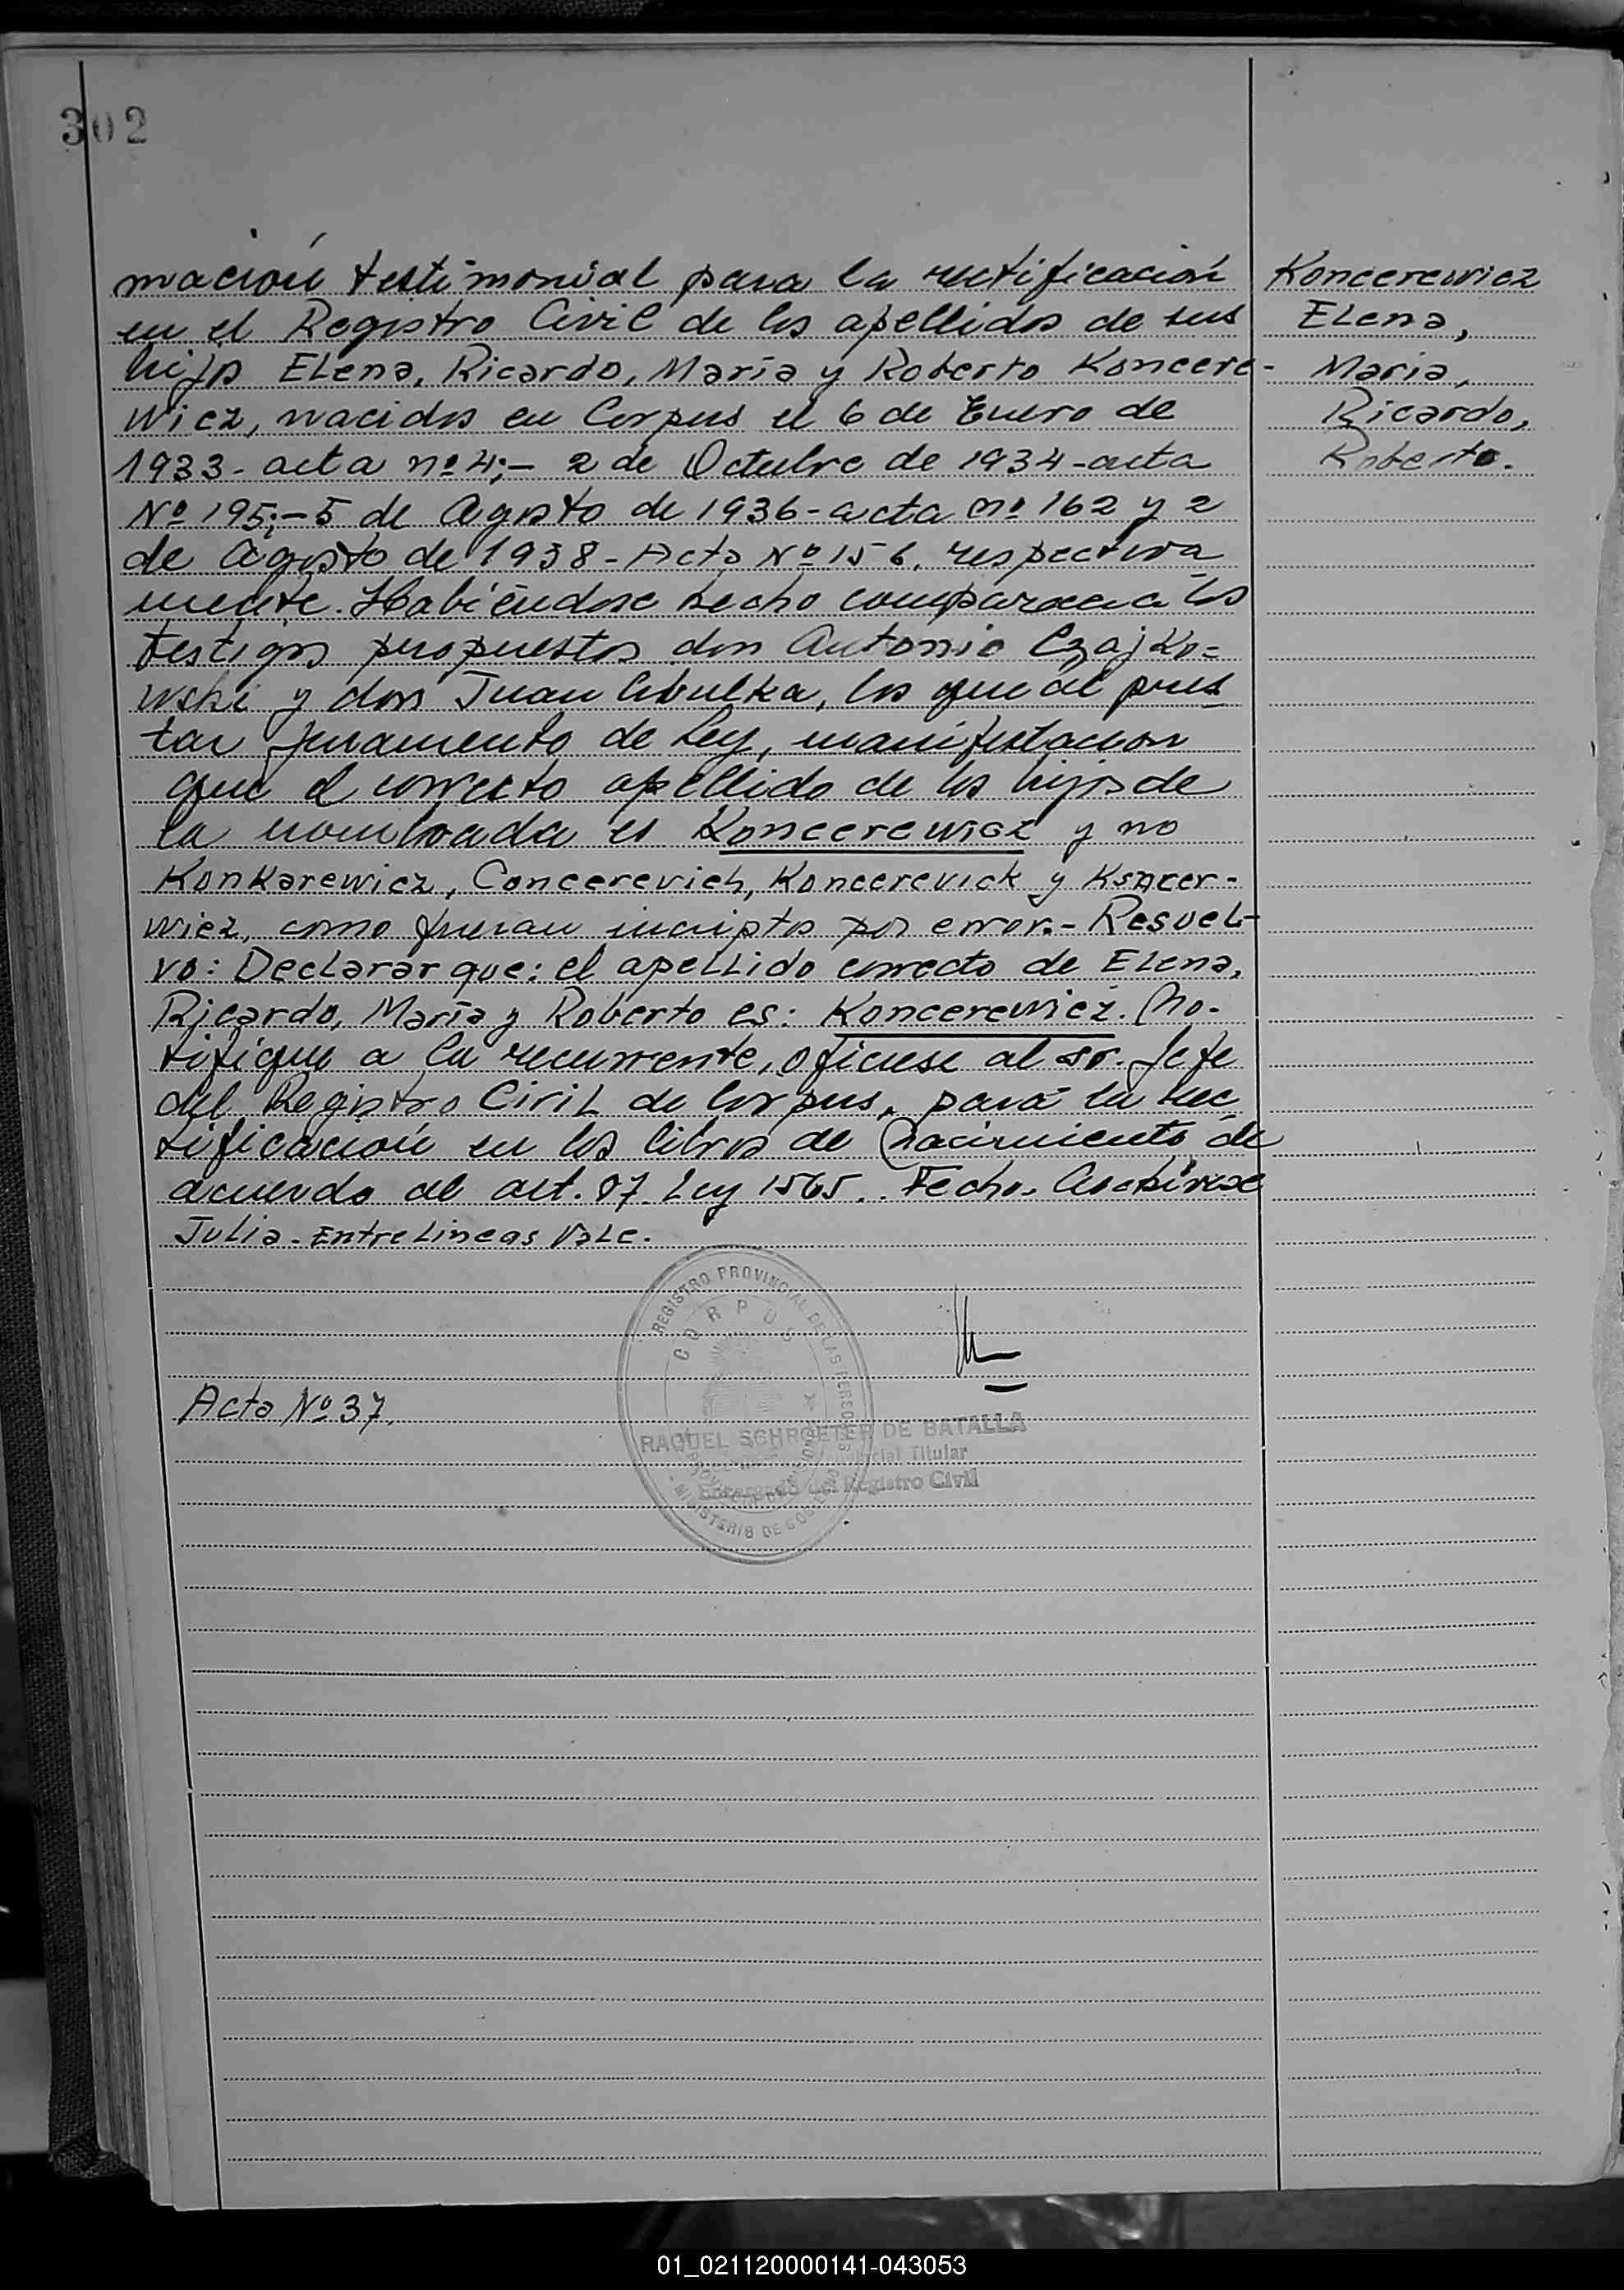 302
mación testimonial para la rectificación
en el Registro Civil de los apellidos de sus
hijos Elena, Ricardo, María y Roberto Koncere-
wicz, nacidos en Corpus el 6 de Enero de
1933- acta nº 4;- 2 de Octubre de 1934-acta
Nº 195;-5 de Agosto de 1936-acta nº 162 y 2
de Agosto de 1938-Acta Nº 156, respectiva
mente. Habiéndose hecho comparecer a los
testigos propuestos don Antonio Czajko=
wski y don Juan Cibulka, los que al pres
tar juramento de Ley, manifestaron
que el correcto apellido de los hijos de
la nombrada es Koncerewicz y no
Konkarewicz, Concerevich, Koncerevick y Koncer-
wiez, como fueran inscriptos por error.- Resuel-
vo: Declarar que: el apellido correcto de Elena,
Ricardo, María y Roberto es: Koncerewicz. No-
tifíquese a la recurrente, ofíciese al sr. Jefe
del Registro Civil de Corpus, para la rec
tificación en los libros de Nacimiento de
acuerdo al art. 87 Ley 1565.. Fecho. Archívese
Julia-Entrelineas Vale.
Koncerewicz
Elena,
Maria,
Ricardo,
Roberto.
REGISTRO PROVINCIAL DE LAS PERSONAS
CORPUS
PROVINCIA DE MISIONES
MINISTERIO DE GOBIERNO
RAQUEL SCHROETER DE BATALLA
Provincial Titular
Encargado del Registro Civil
Acta Nº 37.
01_021120000141-043053